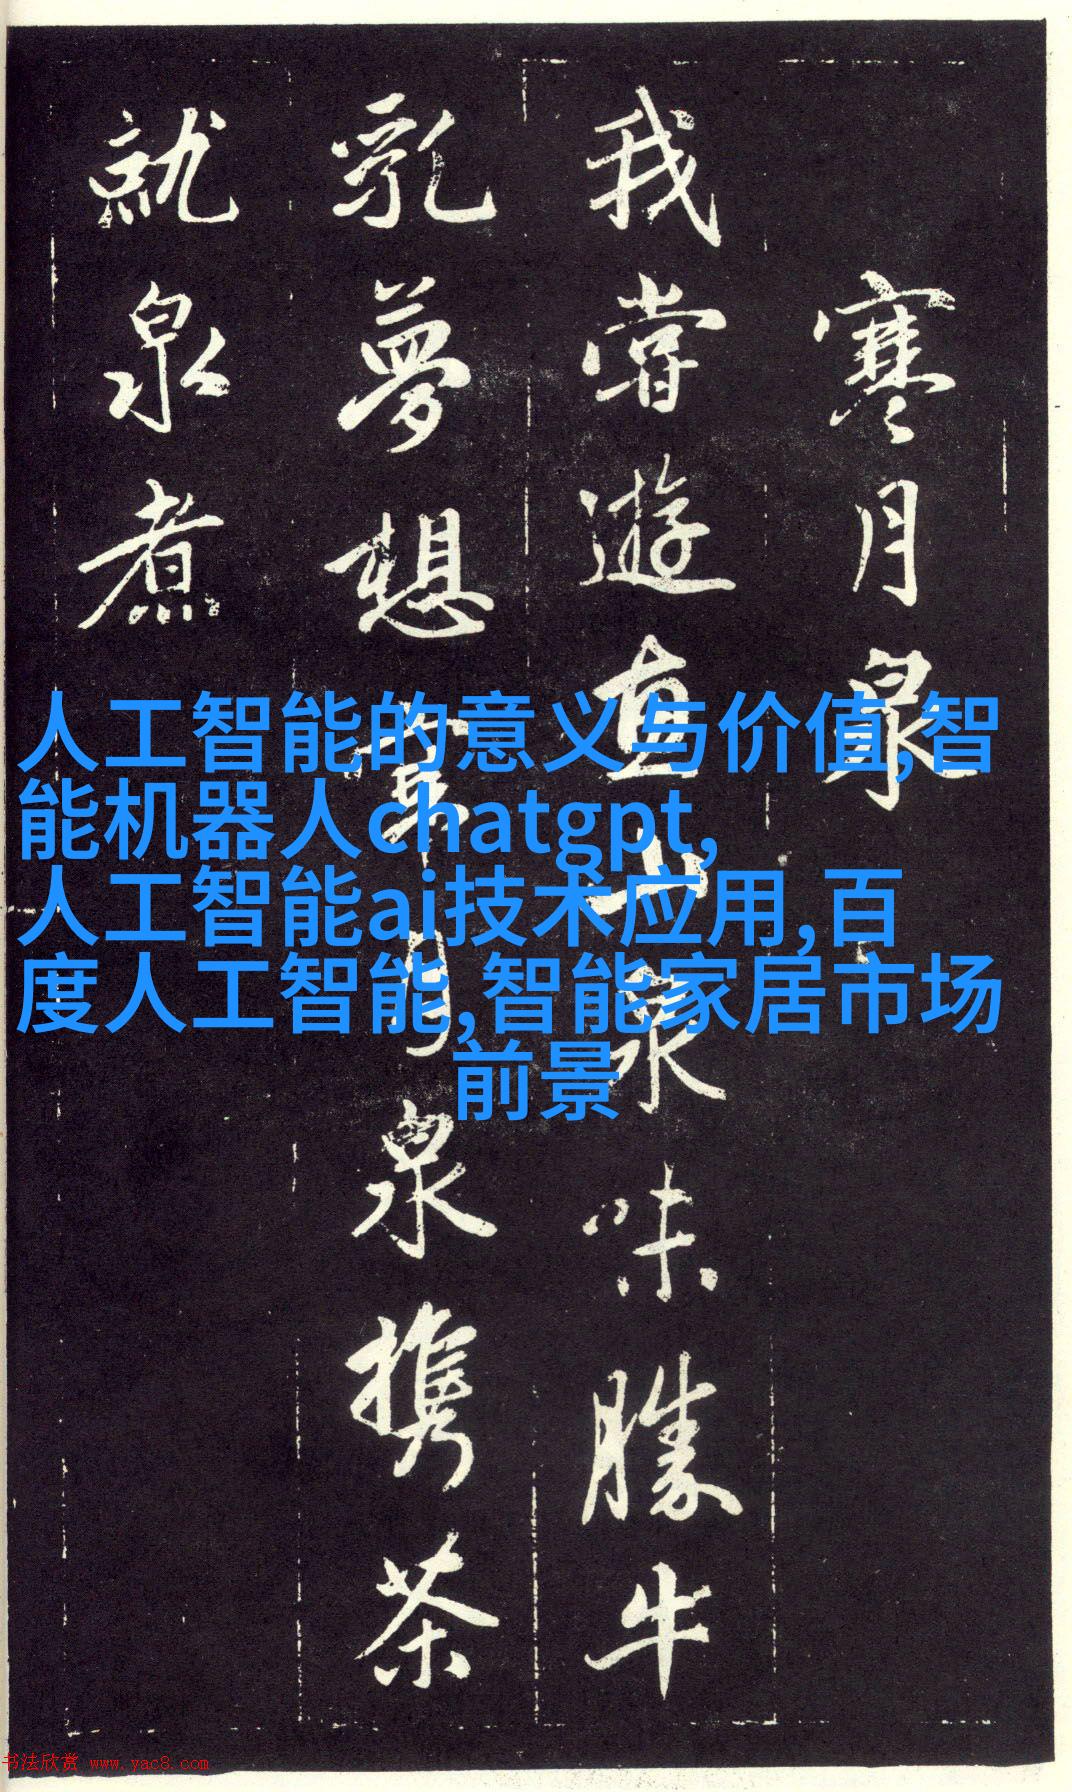 寒月泉
我嘗遊山泉味勝牛
乳夢想月泉携茶
就泉煮
人工智能的意义与价值,智
能机器人chatgpt,
人工智能ai技术应用,百
度人工智能,智能家居市场
前景
书法欣赏 www.yac8.com